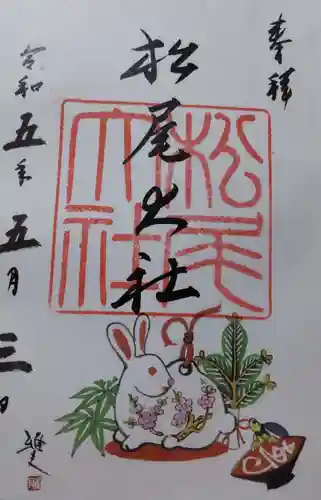 奉拝
松尾大社
松尾大社
令和五年五月三日